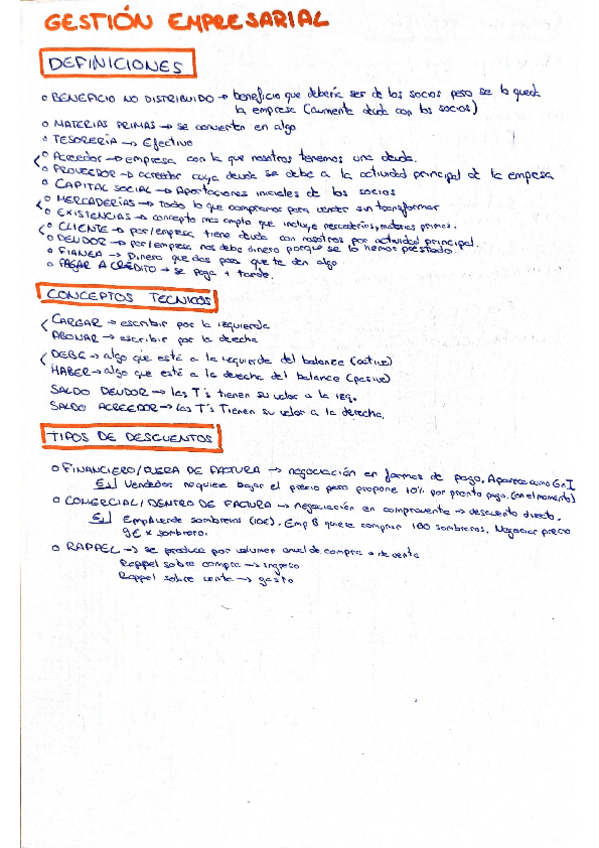 GESTIÓN EMPRESARIAL
DEFINICIONES
o BENEFICIO NO DISTRIBUIDO → beneficio que debería ser de los socios pero se lo queda
la empresa (aumenta deuda con los socios)
o MATERIAS PRIMAS → se convierten en algo
o TESORERÍA → Efectivo
o Acreedor → empresa con la que nosotros tenemos una deuda.
o PROVEEDOR → acreedor cuya deuda se debe a la actividad principal de la empresa
o CAPITAL SOCIAL → Aportaciones iniciales de los socios
o MERCADERÍAS → todo lo que compramos para vender sin transformar
o EXISTENCIAS → concepto más amplio que incluye mercaderías, materias primas.
o CLIENTE → per/empresa tiene deuda con nosotros por actividad principal.
o DEUDOR → per/empresa nos debe dinero porque se lo hemos prestado.
o FIANZA → Dinero que das para que te den algo
o PAGAR A CRÉDITO → se paga + tarde.
CONCEPTOS TECNICOS
CARGAR → escribir por la izquierda
ABONAR → escribir por la derecha
DEBE → algo que está a la izquierda del balance (activo)
HABER → algo que está a la derecha del balance (pasivo)
SALDO DEUDOR → las T's tienen su valor a la izq.
SALDO ACREEDOR → las T's Tienen su valor a la derecha.
TIPOS DE DESCUENTOS
o FINANCIERO/FUERA DE FACTURA → negociación en formas de pago. Aparece como G o I
Ej Vendedor no quiere bajar el precio pero propone 10% por pronto pago. (en el momento)
o COMERCIAL/DENTRO DE FACTURA → negociación en compraventa → descuento directo.
Ej Emp A vende sombreros (10€). Emp B quiere comprar 100 sombreros. Negociar precio
9€ x sombrero.
o RAPPEL → se produce por volumen anual de compra o de venta
Rappel sobre compra → ingreso
Rappel sobre venta → gasto